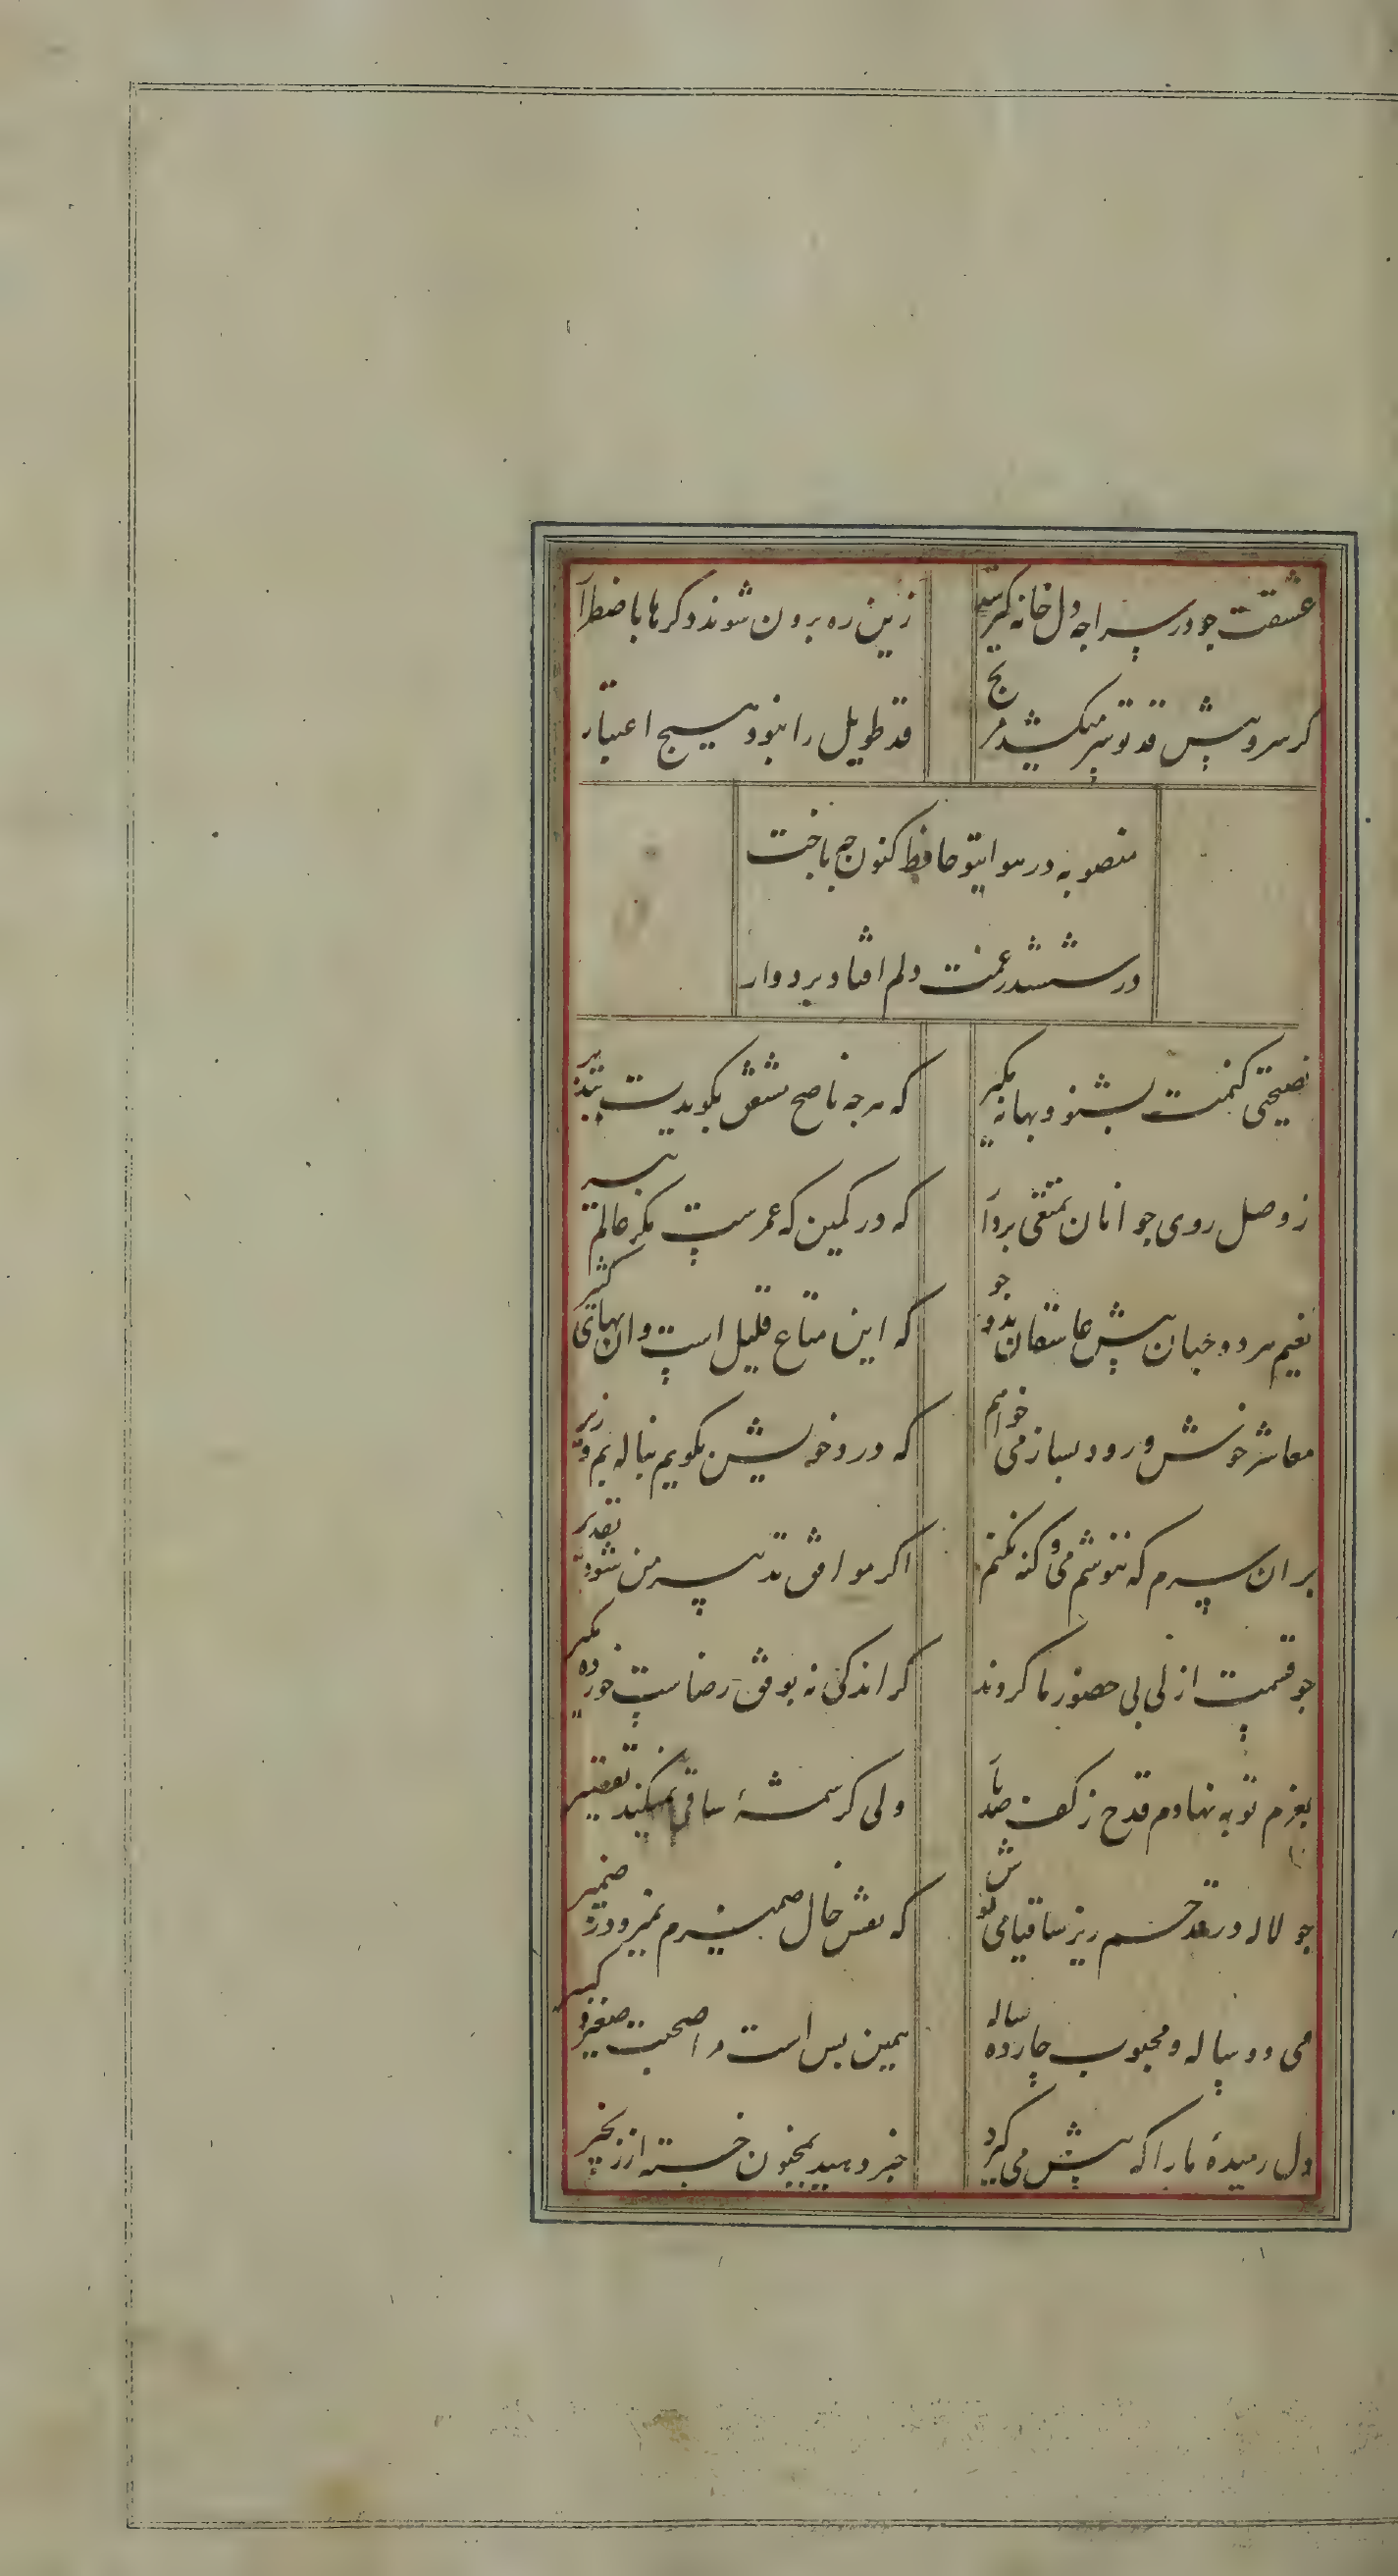 عشقت جو در سراجه دل خانه گیر شد
زین ره برون شوند دکرها باضطرا
کر سرو پیش قد تو سر میکشد مرنج
قد طویل را نبود هیچ اعتبار
منصوبه در هوایتو حافظ کنون جه باخت
در ششدر غمت دلم افتاد بردوار
نصیحتی کنمت بشنو و بهانه مکیر
که هرجه ناصح مشفق بکویدت بپذیر
ز وصل روی جوانان تمتعی بردار
که در کمین که عمرست مکر عالم پیر
نعیم هر دو جهان پیش عاشقان بدو جو
که این متاع قلیل است وان بهای کثیر
معاشر خوش و رود بساز می خواهم
که درد خویش بکویم بناله بم و زیر
بران سرم که ننوشم می و کنه نکنم
اکر موافق تدبیر من شود تقدیر
جو قسمت ازلی بی حضور ما کردند
کر اندکی نه بوفق رضاست خورده مکیر
بعزم توبه نهادم قدح ز کف صد بار
ولی کرشمهٔ ساقی نمیکند تقصیر
جو لاله در قدحم ریز ساقیا می
که نقش خال ضمیرم نمیرود ز ضمیر
می دو ساله و محبوب چارده ساله
همین بس است مرا صحبت صغیر و کبیر
دل رمیدهٔ ما را که پیش می کیرد
خبر دهید بمجنون خسته از زنجیر